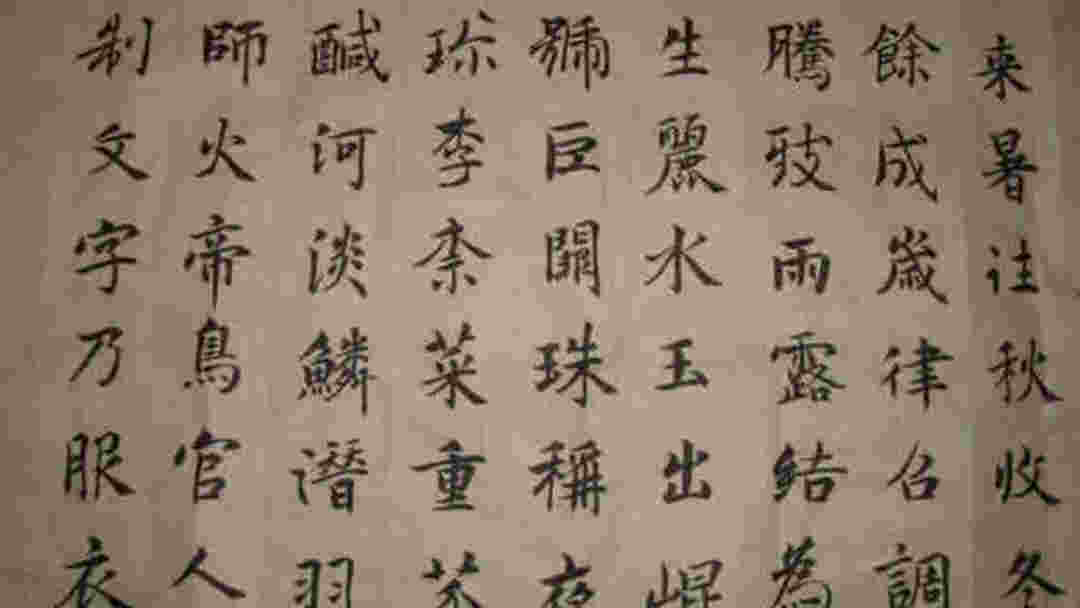 来暑往秋收冬
餘成歲律召調
騰致雨露結為
生麗水玉出崐
號巨闕珠稱夜
珎李柰菜重芥
鹹河淡鱗潛羽
師火帝鳥官人
制文字乃服衣